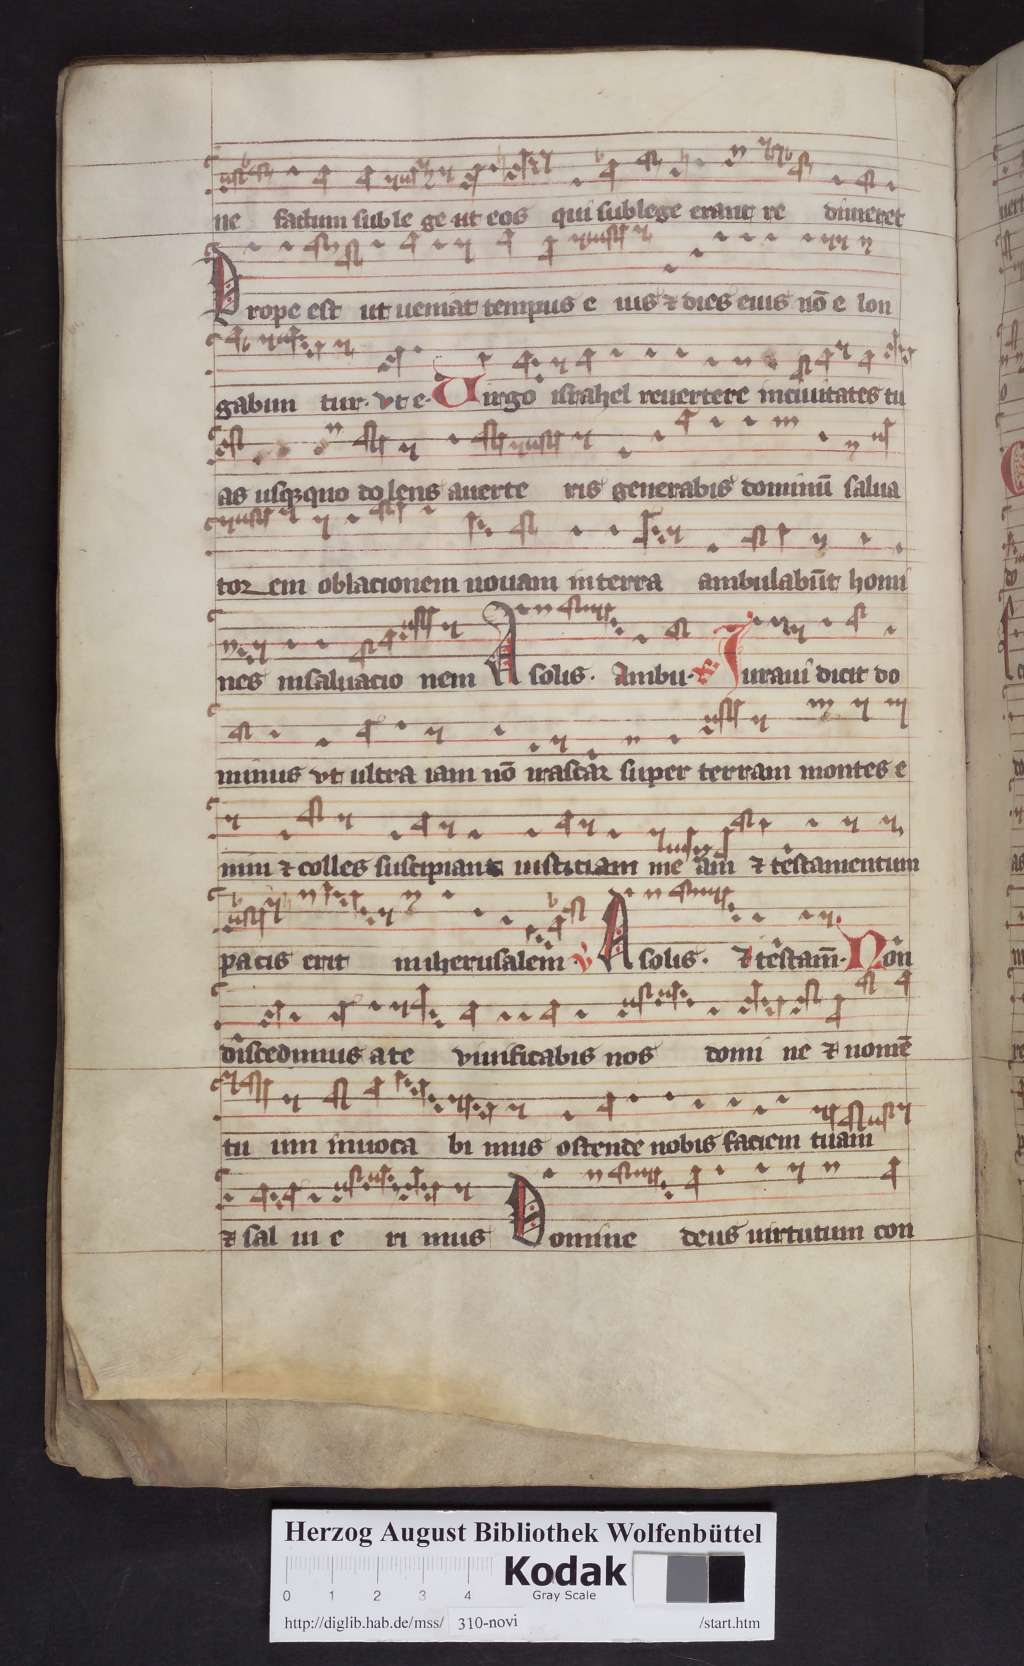 ne factum sub le ge ut eos qui sub lege erant re dimeret
Prope est ut ueniat tempus e ius ⁊ dies eius nō e lon
gabun tur. vt e. Uirgo israhel reuertere inciuitates tu
as usqꝫquo do lens auerte ris generabis dominū salua
tor em oblacionem nouam in terra ambulabūt homi
nes insaluacio nem A solis. Ambu. Iuraui dicit do
minus vt ultra iam nō irascar super terram montes e
nim ⁊ colles suscipiant iusticiam me am ⁊ testamentum
pacis erit in iherusalem ℣ A solis. ⁊ testam̄. Non
discedimus a te viuificabis nos domi ne ⁊ nomē
tu um inuoca bi mus ostende nobis faciem tuam
⁊ sal ui e ri mus Domine deus uirtutum con
Herzog August Bibliothek Wolfenbüttel
0 1 2 3 4
Kodak
Gray Scale
http://diglib.hab.de/mss/ 310-novi /start.htm